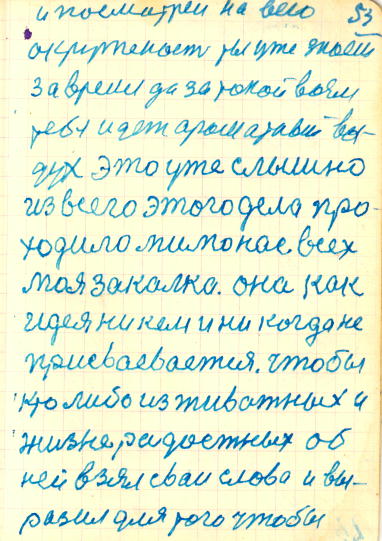 и посмотрел на всю 53
окружность ты уже знаеш
за время да за такой воям
тебя идет ароматавый воз-
дух это уже слышно
из всего этого дела про-
ходило мимо нас всех
моя закалка. она как
идея никем и никогда не
присваевается. чтобы
кто либо из животных и
жизнерадостных об
ней взял сваи слова и вы-
разил для того чтобы